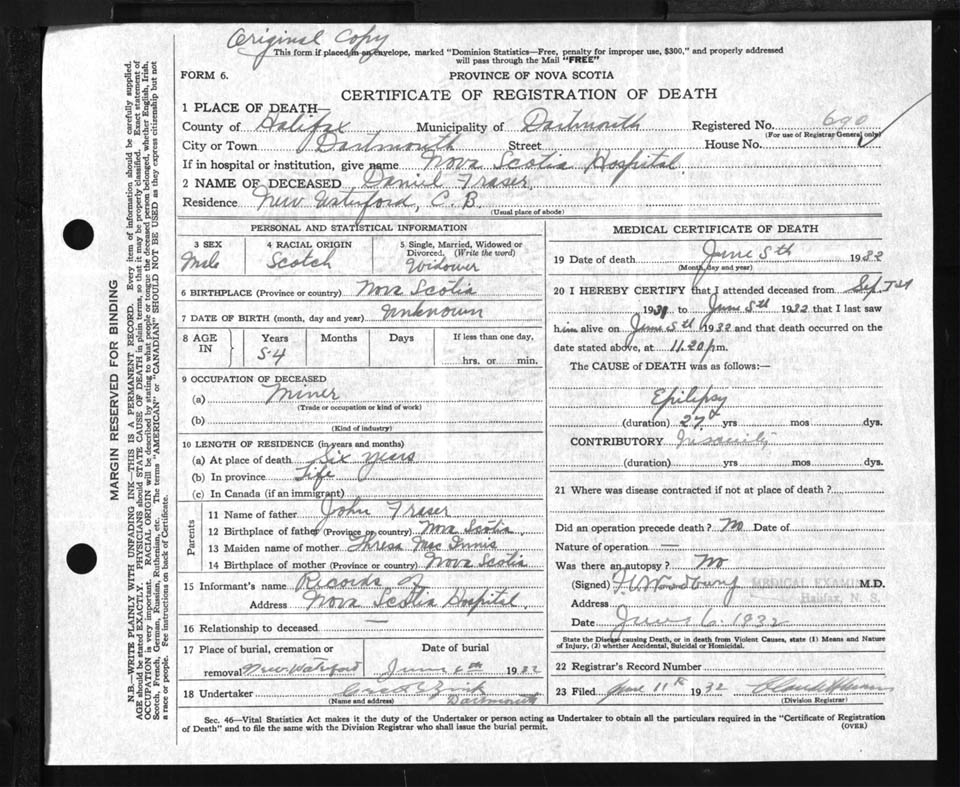 Original Copy
This form if placed in an envelope, marked "Dominion Statistics—Free, penalty for improper use, $300," and properly addressed
will pass through the Mail "FREE"
FORM 6.
PROVINCE OF NOVA SCOTIA
CERTIFICATE OF REGISTRATION OF DEATH
1 PLACE OF DEATH—
County of Halifax Municipality of Dartmouth Registered No. 690
(For use of Registrar General only)
City or Town Dartmouth Street House No.
If in hospital or institution, give name Nova Scotia Hospital
2 NAME OF DECEASED Daniel Fraser
Residence New Waterford, C. B.
(Usual place of abode)
PERSONAL AND STATISTICAL INFORMATION
3 SEX Male
4 RACIAL ORIGIN Scotch
5 Single, Married, Widowed or Divorced. (Write the word) Widower
6 BIRTHPLACE (Province or country) Nova Scotia
7 DATE OF BIRTH (month, day and year) Unknown
8 AGE IN Years Months Days If less than one day,
54 hrs. or min.
9 OCCUPATION OF DECEASED
(a) Miner
(Trade or occupation or kind of work)
(b)
(Kind of industry)
10 LENGTH OF RESIDENCE (in years and months)
(a) At place of death Six years
(b) In province Life
(c) In Canada (if an immigrant)
Parents
11 Name of father John Fraser
12 Birthplace of father (Province or country) Nova Scotia
13 Maiden name of mother Thresa Mac Innis
14 Birthplace of mother (Province or country) Nova Scotia
15 Informant's name Records of
Address Nova Scotia Hospital
16 Relationship to deceased —
17 Place of burial, cremation or Date of burial
removal New Waterford June 1932
18 Undertaker
(Name and address) Dartmouth
MEDICAL CERTIFICATE OF DEATH
19 Date of death June 5th 1932
(Month, day and year)
20 I HEREBY CERTIFY that I attended deceased from Sept
1931 to June 5th 1932 that I last saw
him alive on June 5th 1932 and that death occurred on
date stated above, at 11.20 p.m.
The CAUSE of DEATH was as follows:—
Epilepsy
(duration) 27 yrs mos dys.
CONTRIBUTORY Insanity
(duration) yrs mos dys.
21 Where was disease contracted if not at place of death?
Did an operation precede death? No Date of
Nature of operation —
Was there an autopsy? No
(Signed) M.D.
MEDICAL EXAMINER
Halifax, N. S.
Address
Date June 6. 1932
State the Disease causing Death, or in death from Violent Causes, state (1) Means and Nature
of Injury, (2) whether Accidental, Suicidal or Homicidal.
22 Registrar's Record Number
23 Filed June 11th 1932
(Division Registrar)
Sec. 46—Vital Statistics Act makes it the duty of the Undertaker or person acting as Undertaker to obtain all the particulars required in the "Certificate of Registration
of Death" and to file the same with the Division Registrar who shall issue the burial permit. (OVER)
MARGIN RESERVED FOR BINDING
N.B.—WRITE PLAINLY WITH UNFADING INK—THIS IS A PERMANENT RECORD. Every item of information should be carefully supplied.
AGE should be stated EXACTLY. PHYSICIANS should STATE CAUSE OF DEATH in plain terms, so that it may be properly classified. Exact statement of
OCCUPATION is very important. RACIAL ORIGIN will be described by stating to what people or tongue the deceased person belonged, whether English, Irish,
Scotch, French, German, Russian, Ruthenian, etc. The terms "AMERICAN" or "CANADIAN" SHOULD NOT BE USED as they express citizenship but not
a race or people. Fee instructions on back of Certificate.